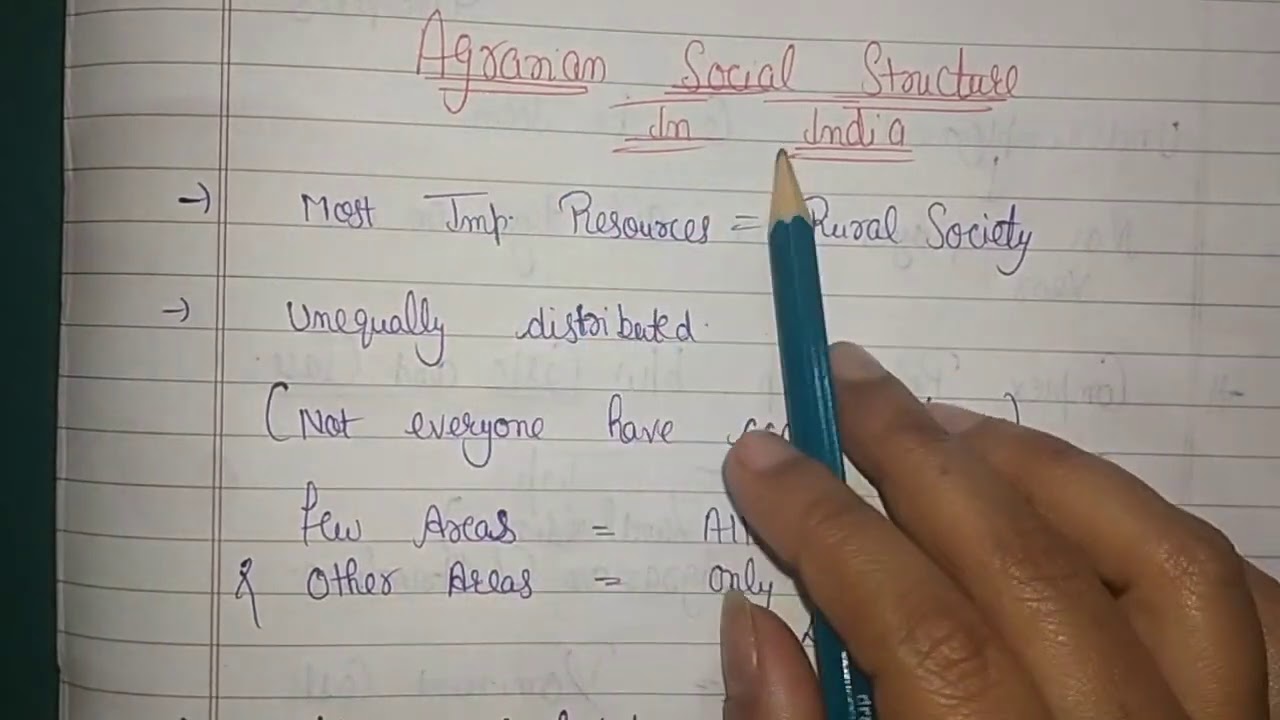 Agrarian Social Structure
In India
→ Most Imp. Resources = Rural Society
→ Unequally distributed.
(Not everyone have )
Few Areas = All
& Other Areas = only